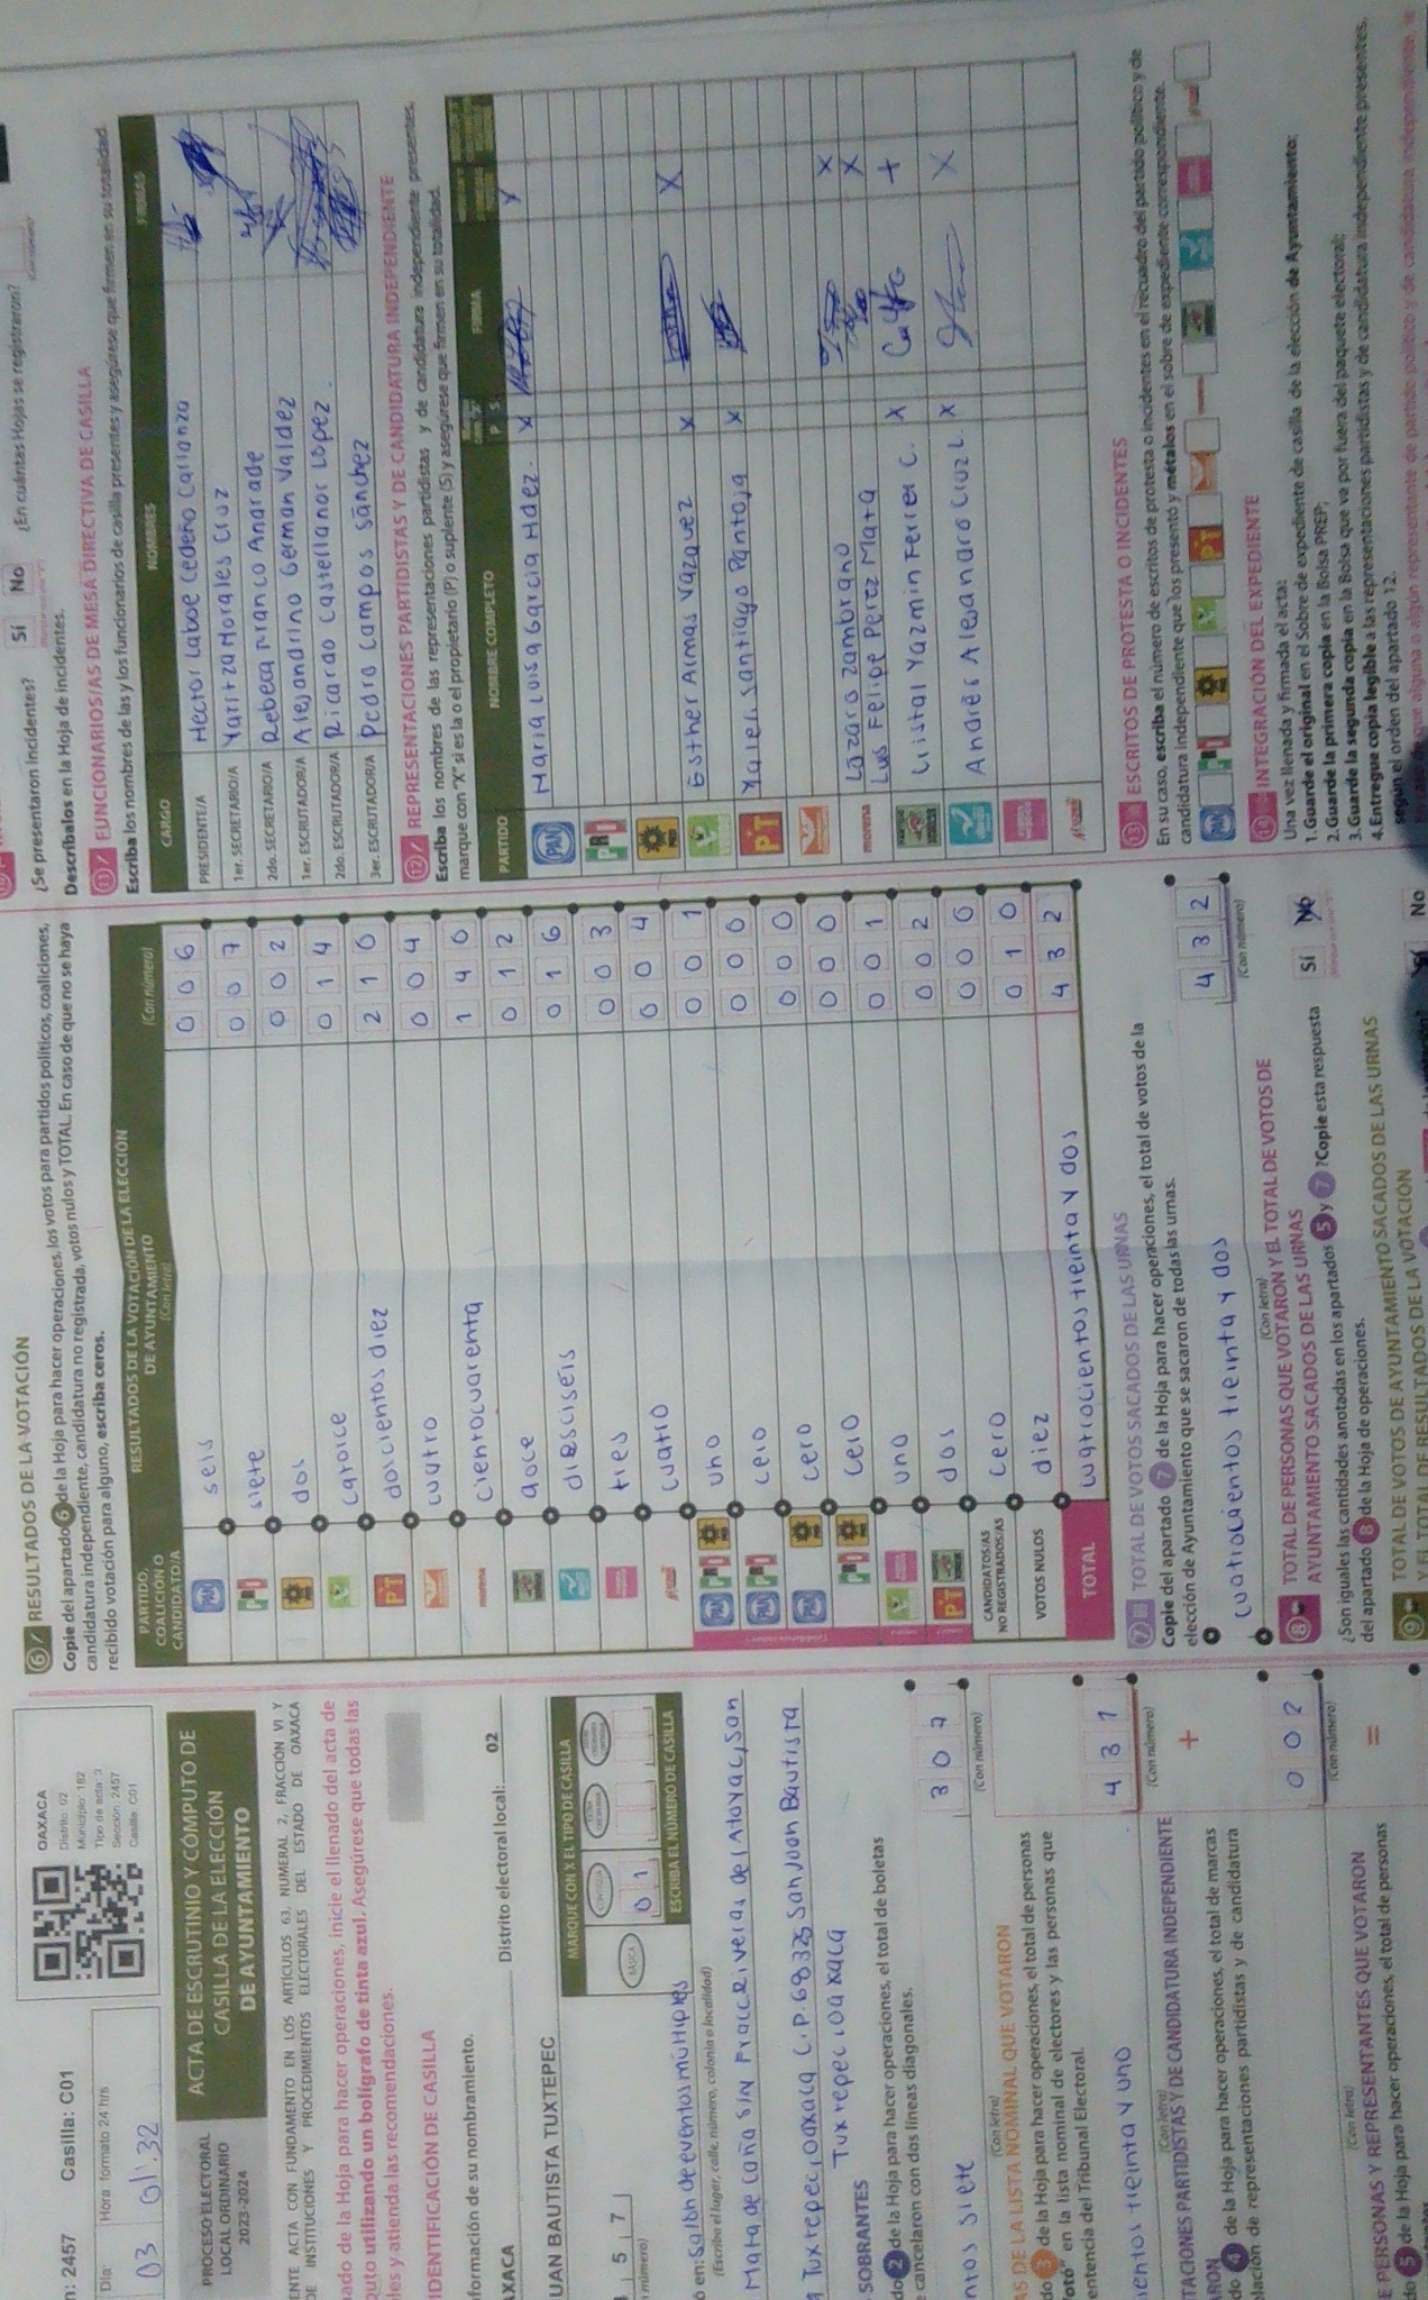 n: 2457 Casilla: C01
Día: Hora formato 24 hrs
03 01:32
OAXACA
Distrito: 02
Municipio: 182
Tipo de acta: 3
Sección: 2457
Casilla: C01
PROCESO ELECTORAL
LOCAL ORDINARIO
2023-2024
ACTA DE ESCRUTINIO Y CÓMPUTO DE
CASILLA DE LA ELECCIÓN
DE AYUNTAMIENTO
ENTE ACTA CON FUNDAMENTO EN LOS ARTÍCULOS 63, NUMERAL 2, FRACCIÓN VI Y
DE INSTITUCIONES Y PROCEDIMIENTOS ELECTORALES DEL ESTADO DE OAXACA
ado de la Hoja para hacer operaciones, inicie el llenado del acta de
puto utilizando un bolígrafo de tinta azul. Asegúrese que todas las
les y atienda las recomendaciones.
IDENTIFICACIÓN DE CASILLA
formación de su nombramiento.
AXACA Distrito electoral local: 02
UAN BAUTISTA TUXTEPEC
5 7
número)
MARQUE CON X EL TIPO DE CASILLA
BÁSICA CONTIGUA
0 1
ESCRIBA EL NÚMERO DE CASILLA
ó en: Salón de eventos múltiples
(Escriba el lugar, calle, número, colonia o localidad)
Mata de caña SIN Fracc Riveras del Atoyac, San
Tuxtepec, Oaxaca C.P. 68325 San Juan Bautista
Tuxtepec, Oaxaca
SOBRANTES
do 2 de la Hoja para hacer operaciones, el total de boletas
e cancelaron con dos líneas diagonales.
ntos siete 3 0 7
(Con letra) (Con número)
AS DE LA LISTA NOMINAL QUE VOTARON
do 3 de la Hoja para hacer operaciones, el total de personas
otó" en la lista nominal de electores y las personas que
entencia del Tribunal Electoral.
ientos treinta y uno 4 3 1
(Con letra) (Con número)
TACIONES PARTIDISTAS Y DE CANDIDATURA INDEPENDIENTE
ARON
do 4 de la Hoja para hacer operaciones, el total de marcas
lación de representaciones partidistas y de candidatura
+
0 0 2
(Con letra) (Con número)
E PERSONAS Y REPRESENTANTES QUE VOTARON
do 5 de la Hoja para hacer operaciones, el total de personas
=
6 RESULTADOS DE LA VOTACIÓN
Copie del apartado 6 de la Hoja para hacer operaciones, los votos para partidos políticos, coaliciones,
candidatura independiente, candidatura no registrada, votos nulos y TOTAL. En caso de que no se haya
recibido votación para alguno, escriba ceros.
PARTIDO, COALICIÓN O CANDIDATO/A
RESULTADOS DE LA VOTACIÓN DE LA ELECCIÓN DE AYUNTAMIENTO
(Con letra) (Con número)
PAN seis 0 0 6
PRI siete 0 0 7
PRD dos 0 0 2
catorce 0 1 4
PT doscientos diez 2 1 0
cuatro 0 0 4
morena cientocuarenta 1 4 0
doce 0 1 2
diesciseis 0 1 6
tres 0 0 3
cuatro 0 0 4
PAN PRI PRD uno 0 0 1
PAN PRI cero 0 0 0
PAN PRD cero 0 0 0
PRI PRD cero 0 0 0
uno 0 0 1
PT dos 0 0 2
CANDIDATOS/AS NO REGISTRADOS/AS cero 0 0 0
VOTOS NULOS diez 0 1 0
TOTAL cuatrocientos treinta y dos 4 3 2
7 TOTAL DE VOTOS SACADOS DE LAS URNAS
Copie del apartado 7 de la Hoja para hacer operaciones, el total de votos de la
elección de Ayuntamiento que se sacaron de todas las urnas.
cuatrocientos treinta y dos 4 3 2
(Con letra) (Con número)
8 TOTAL DE PERSONAS QUE VOTARON Y EL TOTAL DE VOTOS DE
AYUNTAMIENTO SACADOS DE LAS URNAS
¿Son iguales las cantidades anotadas en los apartados 5 y 7? Copie esta respuesta
del apartado 8 de la Hoja de operaciones.
Sí No
9 TOTAL DE VOTOS DE AYUNTAMIENTO SACADOS DE LAS URNAS
Y EL TOTAL DE RESULTADOS DE LA VOTACIÓN
Sí No
¿Se presentaron incidentes? Sí No ¿En cuántas Hojas se registraron?
Descríbalos en la Hoja de incidentes.
11 FUNCIONARIOS/AS DE MESA DIRECTIVA DE CASILLA
Escriba los nombres de las y los funcionarios de casilla presentes y asegúrese que firmen en su totalidad.
CARGO NOMBRES FIRMAS
PRESIDENTE/A Hector Laboe Cedeño Carranza
1er. SECRETARIO/A Yaritza Morales Cruz
2do. SECRETARIO/A Rebeca Blanco Andrade
1er. ESCRUTADOR/A Alejandrino German Valdez
2do. ESCRUTADOR/A Ricardo Castellanos Lopez.
3er. ESCRUTADOR/A Pedro Campos Sánchez
12 REPRESENTACIONES PARTIDISTAS Y DE CANDIDATURA INDEPENDIENTE
Escriba los nombres de las representaciones partidistas y de candidatura independiente presentes,
marque con "X" si es la o el propietario (P) o suplente (S) y asegúrese que firmen en su totalidad.
PARTIDO NOMBRE COMPLETO P S FIRMA
PAN Maria Luisa Garcia Hdez. X X
PRI
PRD
Esther Armas Vazquez X X
PT Yaleri Santiago Pantoja X
Lázaro Zambrano X
morena Luis Felipe Perez Mata X
Cristal Yazmin Ferrer C. X +
Andrés Alejandro Cruz L. X X
13 ESCRITOS DE PROTESTA O INCIDENTES
En su caso, escriba el número de escritos de protesta o incidentes en el recuadro del partido político y de
candidatura independiente que los presentó y métalos en el sobre de expediente correspondiente.
PAN PRI PRD PT
14 INTEGRACIÓN DEL EXPEDIENTE
Una vez llenada y firmada el acta:
1. Guarde el original en el Sobre de expediente de casilla de la elección de Ayuntamiento;
2. Guarde la primera copia en la Bolsa PREP;
3. Guarde la segunda copia en la Bolsa que va por fuera del paquete electoral;
4. Entregue copia legible a las representaciones partidistas y de candidatura independiente presentes,
según el orden del apartado 12.
alguna a algún representante de partido político y de candidatura independiente